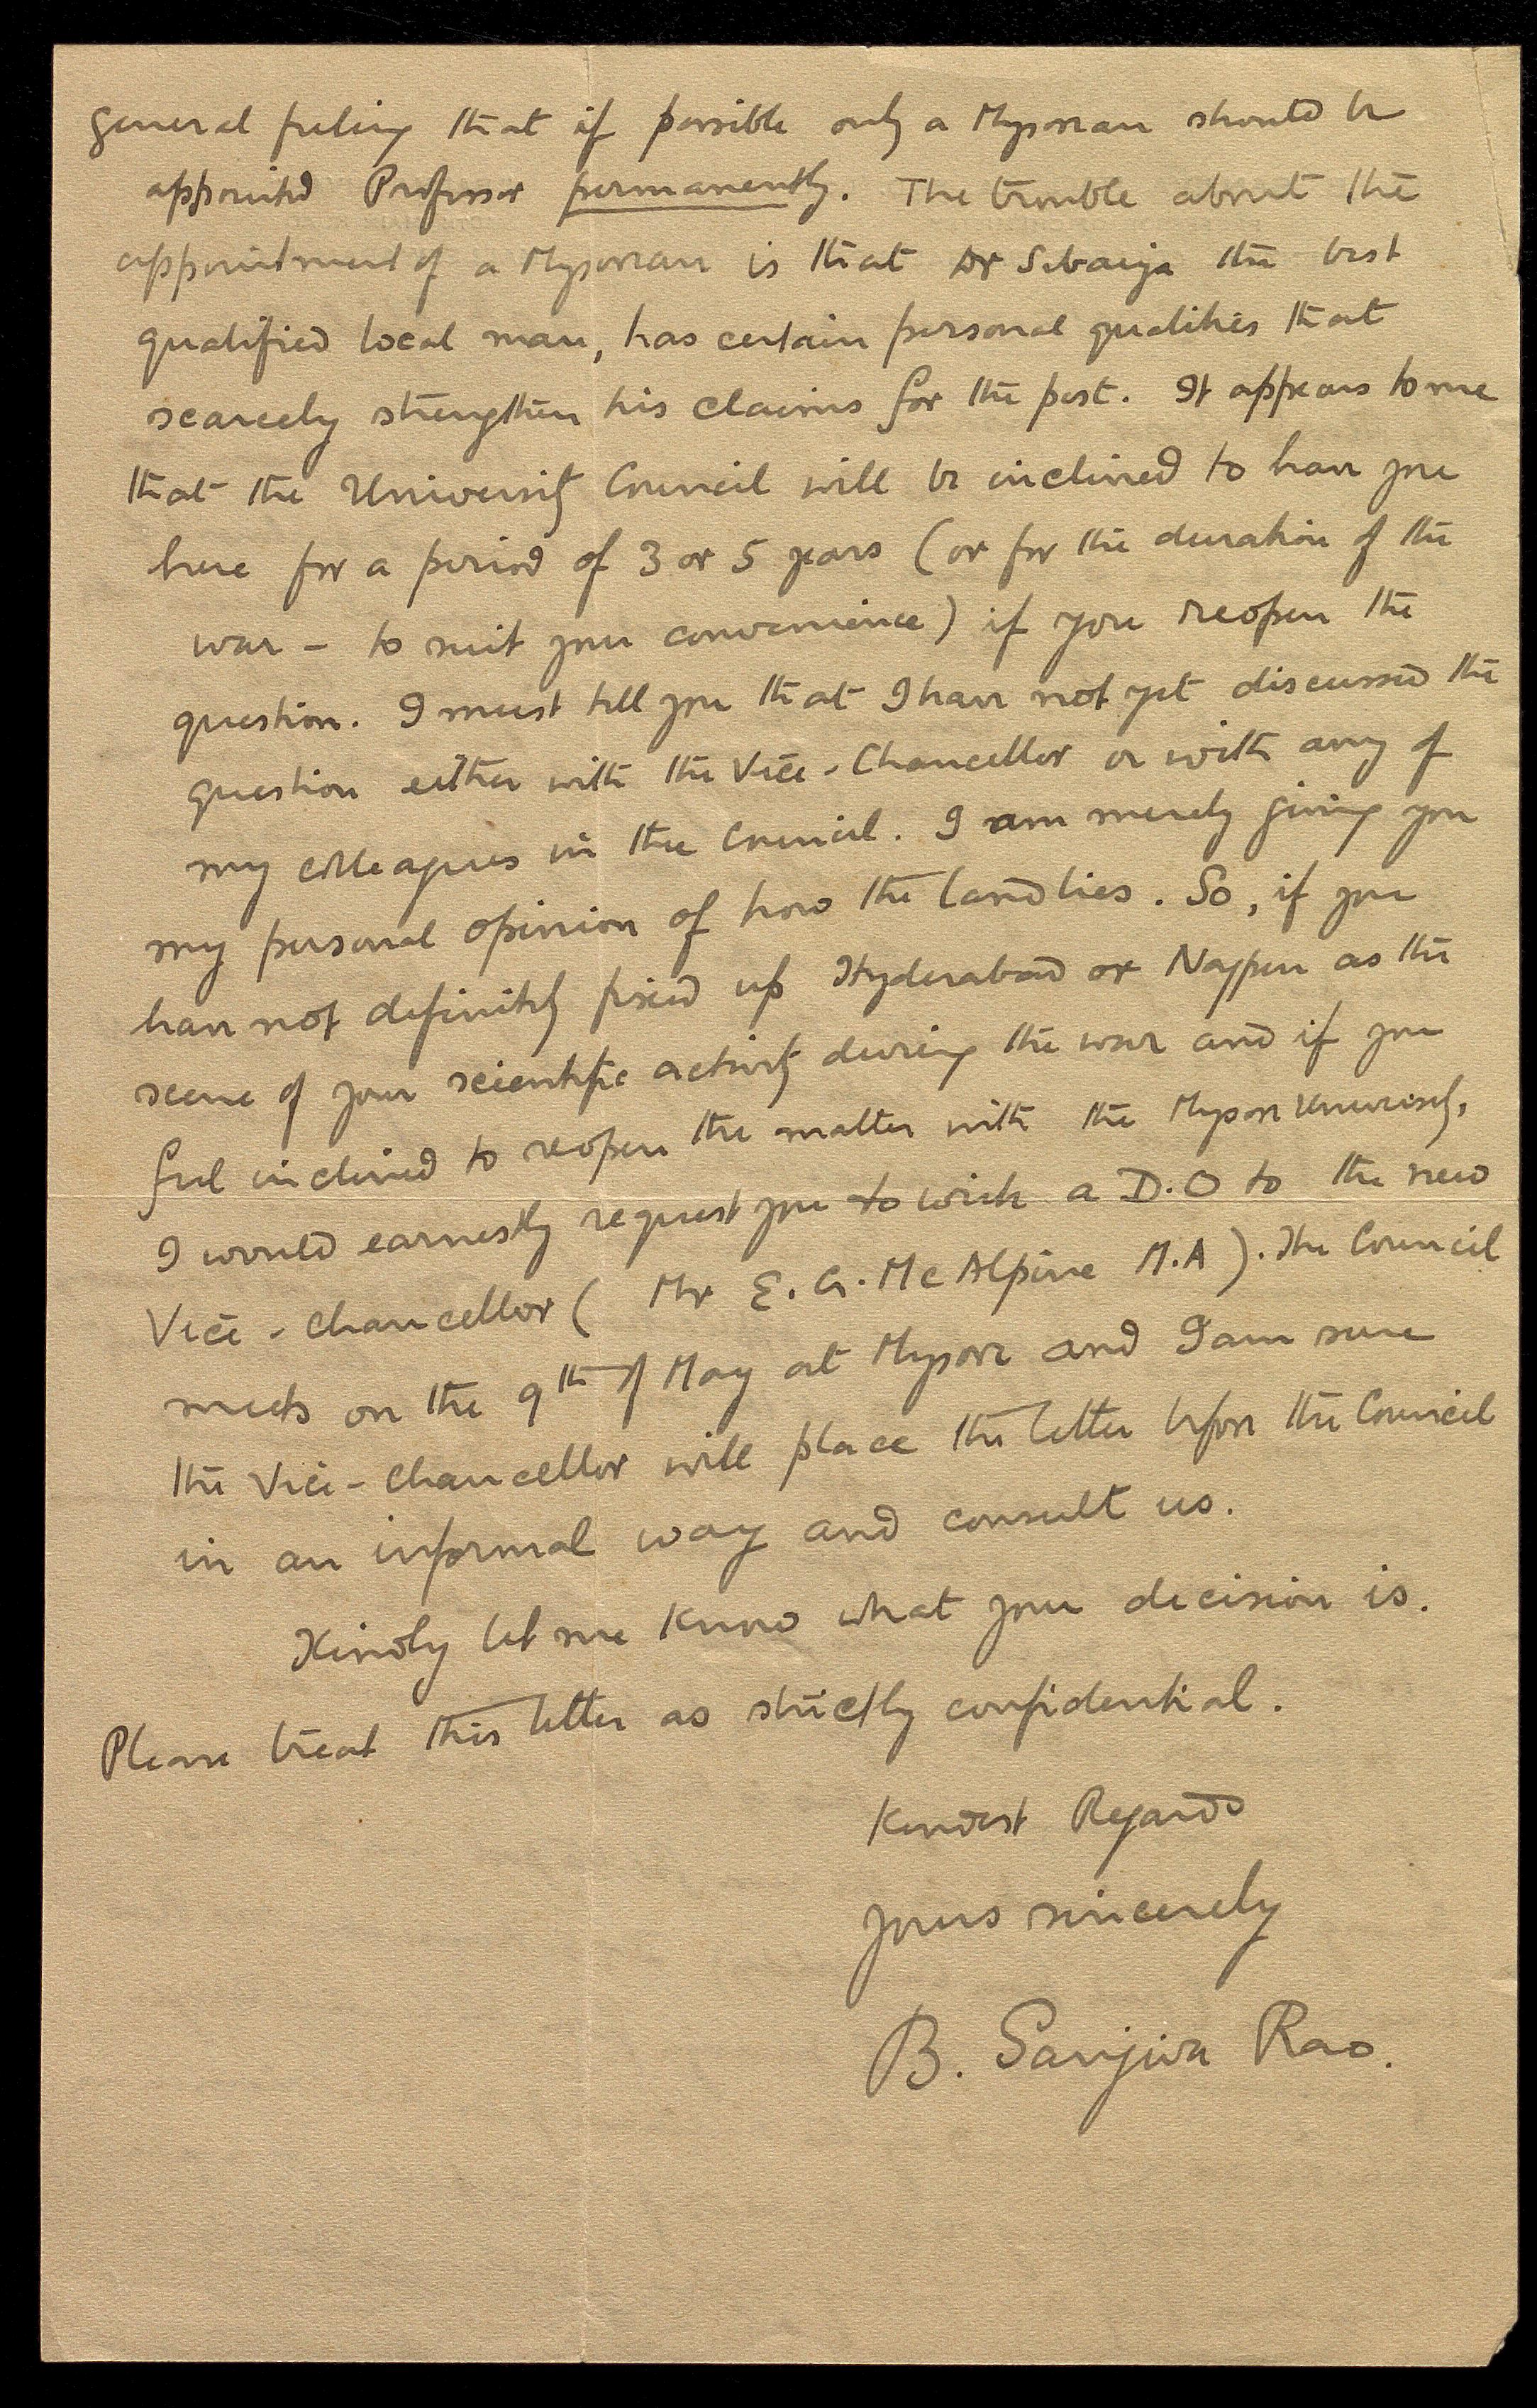 general feeling that if possible only a Mysorean should be
appointed Professor permanently. The trouble about the
appointment of a Mysorean is that Dr Sibaiya the best
qualified local man, has certain personal qualities that
scarcely strengthen his claims for the post. It appears to me
that the University Council will be inclined to have you
here for a period of 3 or 5 years (or for the duration of the
war - to suit your convenience) if you reopen the
question. I must tell you that I have not yet discussed the
question either with the Vice-Chancellor or with any of
my colleagues in the Council. I am merely giving you
my personal opinion of how the land lies. So, if you
have not definitely fixed up Hyderabad or Nagpur as the
scene of your scientific activity during the war and if you
feel inclined to reopen the matter with the Mysore University,
I would earnestly request you to write a D.O to the new
Vice-Chancellor ( Mr E. G. McAlpine M.A ). The Council
meets on the 9th of May at Mysore and I am sure
the Vice-Chancellor will place the letter before the Council
in an informal way and consult us.
Kindly let me know what your decision is.
Please treat this letter as strictly confidential.
Kindest Regards
Yours sincerely
B. Sanjiva Rao.